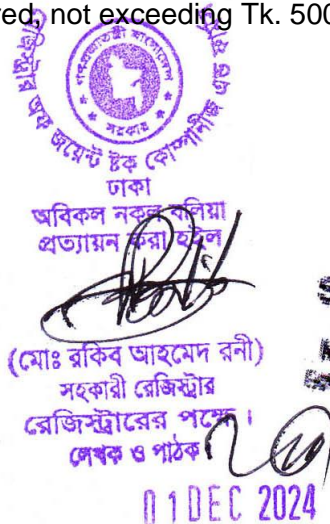 red, not exceeding Tk. 500
গণপ্রজাতন্ত্রী বাংলাদেশ
সরকার
রেজিস্ট্রার অফ জয়েন্ট ষ্টক কোম্পানীজ এন্ড
ঢাকা
অবিকল নকল বলিয়া
প্রত্যায়ন করা হইল
(মোঃ রকিব আহমেদ রনী)
সহকারী রেজিস্ট্রার
রেজিস্ট্রারের পক্ষে ।
লেখক ও পাঠক
01 DEC 2024